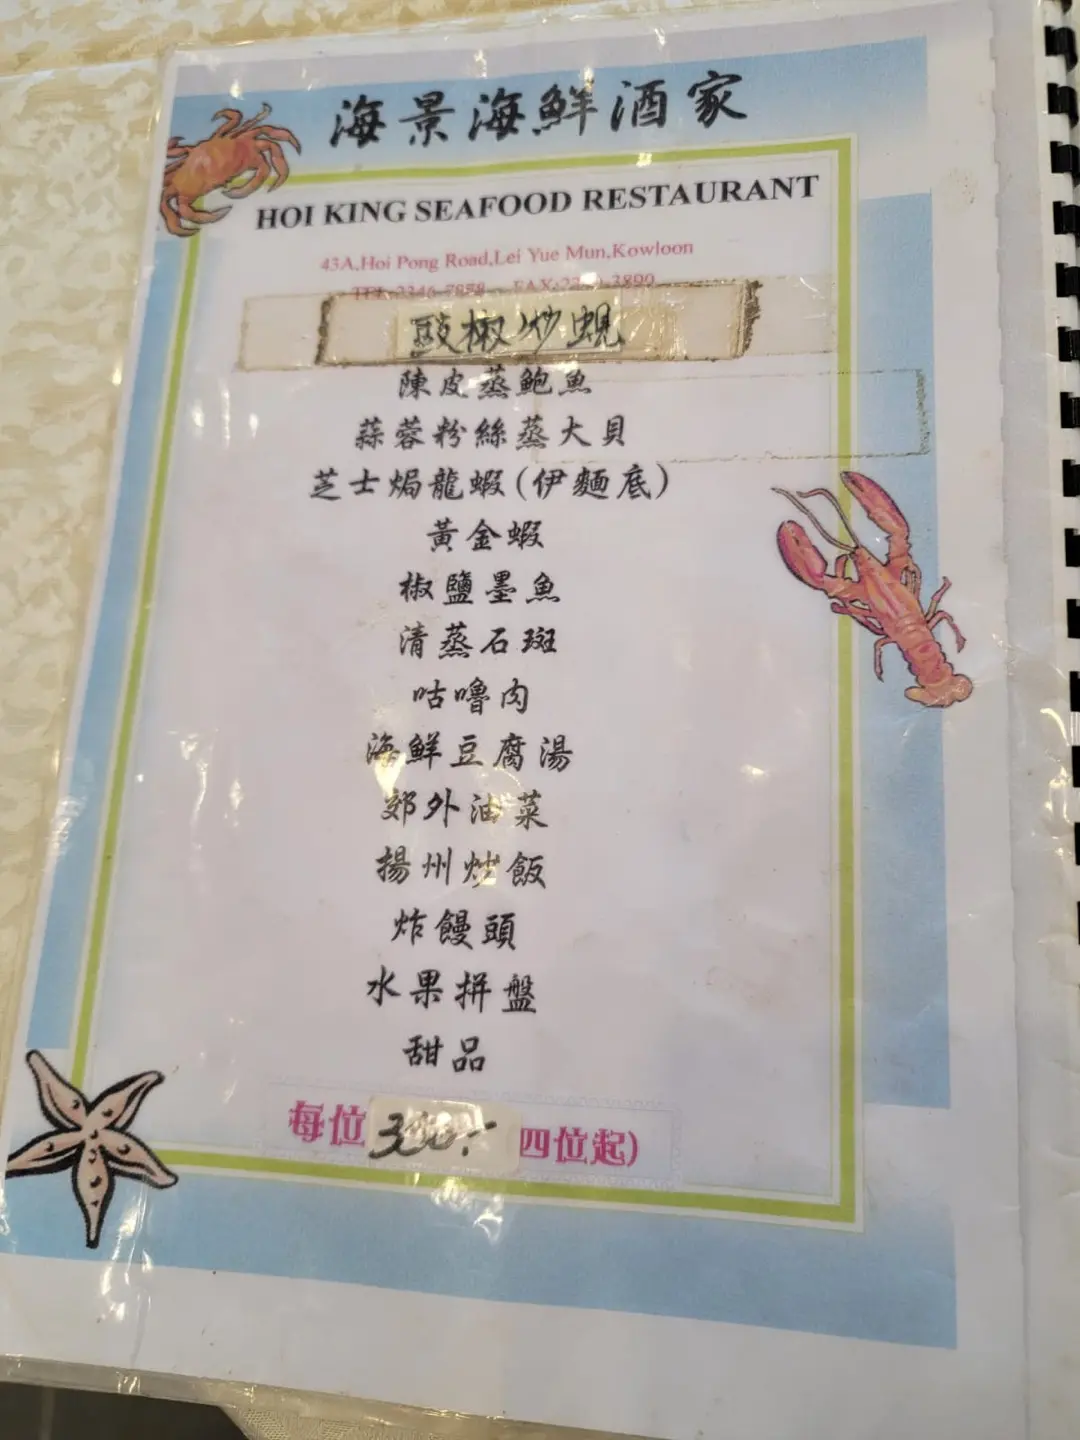 海景海鮮酒家
HOI KING SEAFOOD RESTAURANT
43A,Hoi Pong Road,Lei Yue Mun,Kowloon
豉椒炒蜆
陳皮蒸鮑魚
蒜蓉粉絲蒸大貝
芝士焗龍蝦(伊麵底)
黃金蝦
椒鹽墨魚
清蒸石斑
咕嚕肉
海鮮豆腐湯
郊外油菜
揚州炒飯
炸饅頭
水果拼盤
甜品
每位 四位起)